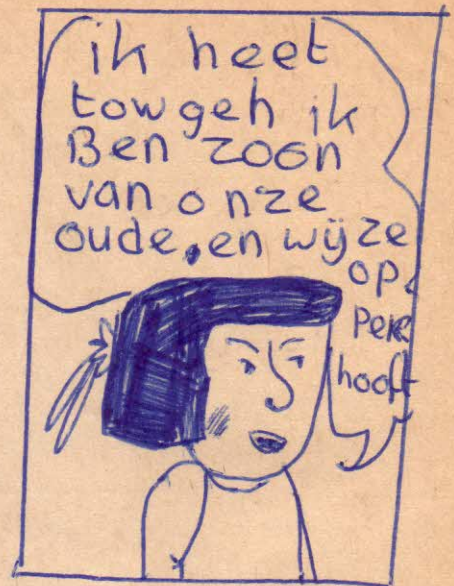 ik heet
towgeh ik
Ben zoon
van onze
oude, en wijze
op
pere
hooft